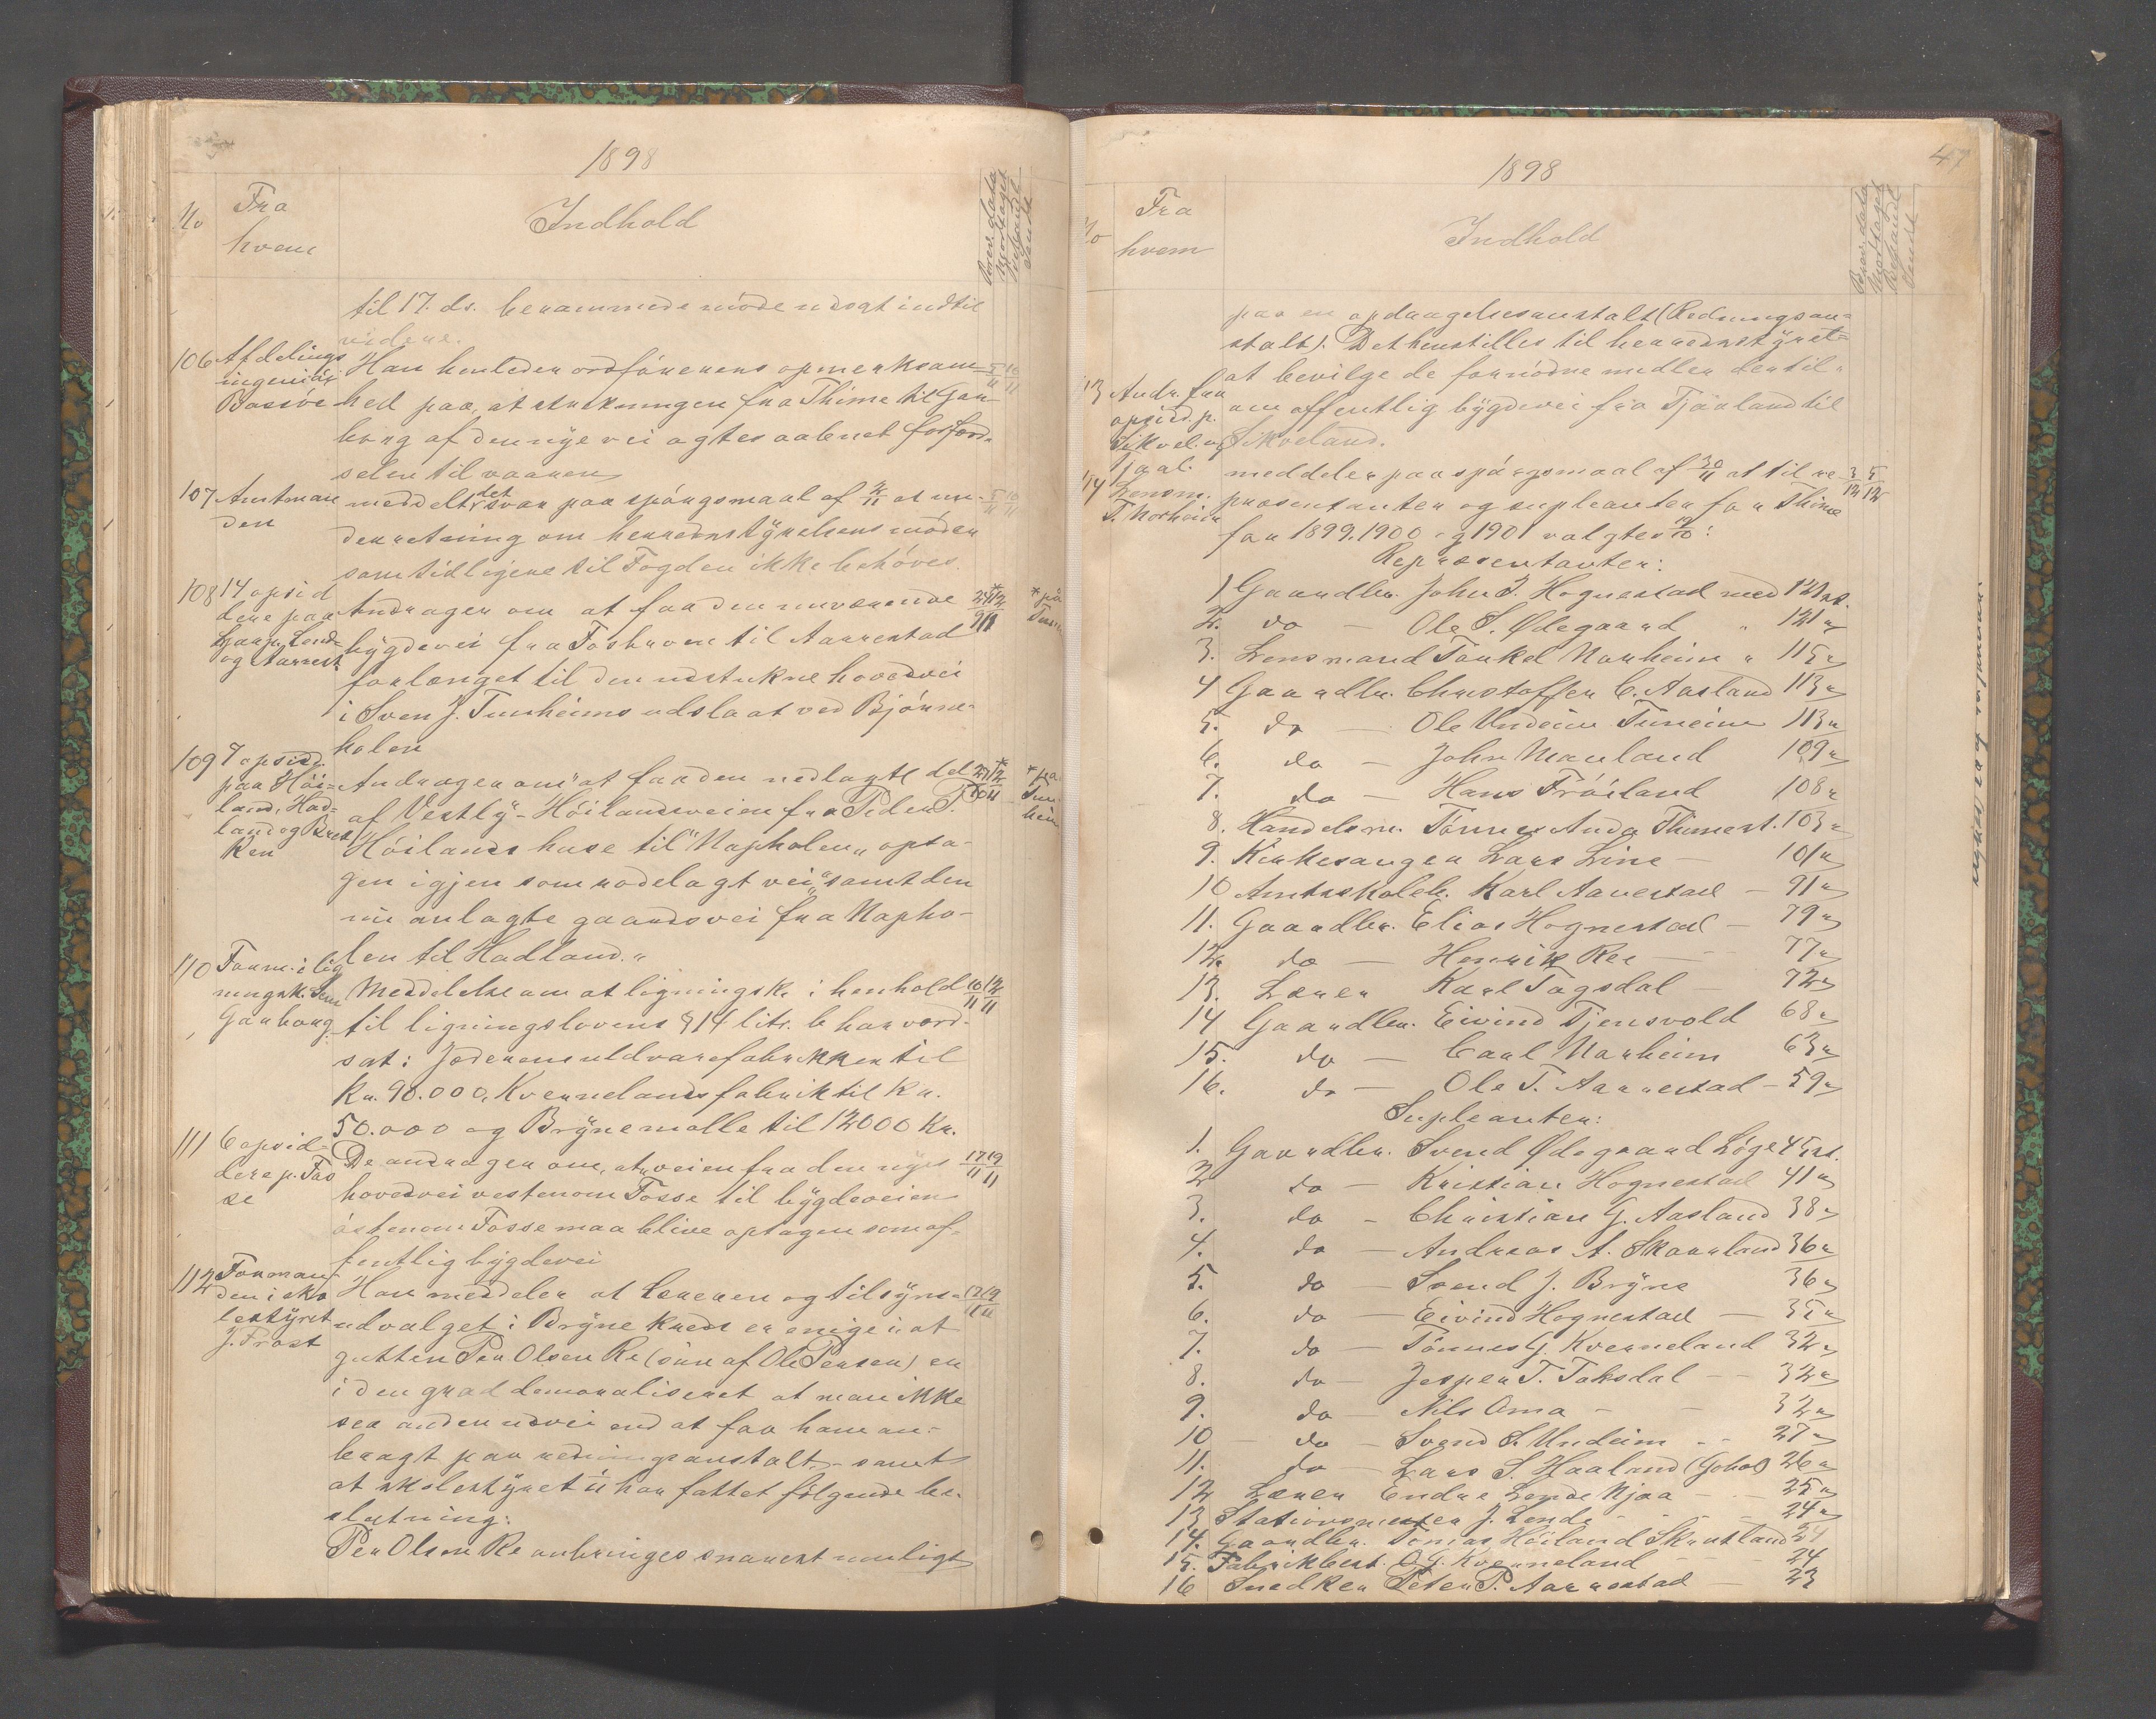 1898
No
Fra
hvem
Indhold
til 17. ds. berammede möde udsat indtil
videre.
106 Afdelings
ingeniör
Bassöe
Han henleder ordförerens opmerksom-
hed paa, at strekningen fra Thime til Gar-
borg af den nye vei agtes aabnet for ferd-
selen til vaaren
107 Amtman
den
meddelt det svar paa spörgsmaal af 2/11 at un-
derretning om herredsstyrelsens möder
som tidligere til Fogden ikke behöves.
108 14 opsid
dere paa
og Aarrest.
Andrager om at faa den nuværende
bygdevei fra Foshaven til Aarrestad
forlænget til den udstukne hovedvei
i Sven J. Tunheims udslaat ved Björne-
holen
109 7 opsidd.
paa Höi-
land, Had-
land og Bræk
ken
Andrager om "at faa den nedlagte del
af Vestly-Höilandsveien fra Peder P.
Höilands huse til "Napholen" opta-
gen igjen som rodelagt vei" samt den
nu anlagte gaardsvei fra Napho-
len til Hadland."
110 Form. i lig
ningsk.
Garborg.
Meddelelse om at ligningsk. i henhold
til ligningslovens § 14 litr. b har verd-
sat: Jæderens uldvarefabrikker til
Kr. 90.000, Kvernelands fabrik til Kr.
50.000 og Brynemölle til 12000 Kr.
111 6 opsid-
dere p. Fos
se
De andrager om, at veien fra den nye
hovedvei vestenom Fosse til bygdeveien
östenom Fosse maa blive optagen som of-
fentlig bygdevei
112 Forman
den i sko
lestyret
J. Frost
Han meddeler at Læreren og tilsyns-
udvalget i Bryne Kreds er enige i at
gutten Per Olsen Re (sön af Ole Persen) er
i den grad demoraliseret at man ikke
ser anden udvei end at faa ham an-
bragt paa redningsanstalt - samt
at skolestyret har fattet fölgende be-
slutning:
Per Olsen Re anbringes snarest muligt
47
1898
No
Fra
hvem
Indhold
paa en opdragelsesanstalt (Redningsan-
stalt). Det henstilles til herredsstyret
at bevilge de fornödne midler dertil.
113 Andr. fra
opsidd. p.
Sikvel. og
Tjaal.
om offentlig bygdevei fra Tjaaland til
Sikveland.
114 Lensm.
T. Norheim
meddeler paa spörgsmaal af 30/11 at til re-
præsentanter og supleanter for Thime
for 1899, 1900 og 1901 valgtes 19/10:
Repræsentanter:
1 Gaardbr. John J. Hognestad med 121 st.
2. do — Ole S. Ødegaard " 121 "
3. Lensmand Torkel Norheim " 115 "
4 Gaardbr. Christoffer C. Aasland 113 "
5. do — Ole Undeim Tuneim 113 "
6. do — John Mauland 109 "
7. do — Hans Fröiland 108 "
8. Handelsm. Tönnes Anda Thimest. 103 "
9. Kirkesanger Lars Line — 101 "
10 Amtsskoleb. Karl Aarrestad — 91 "
11. Gaardbr. Elias Hognestad — 79 "
12. do — Henrik Ree — 77 "
13. Lærer Karl Tagsdal — 72 "
14 Gaardbr. Eivind Tjensvold 68 "
15. do — Carl Norheim 63 "
16. do — Ole T. Aarrestad — 59 "
Supleanter:
1. Gaardbr. Svend Ødegaard Löge 45 st.
2 do — Kristian Hognestad 41 "
3. do — Christian G. Aasland 38 "
4. do — Andreas A. Skaarland 36 "
5. do — Svend J. Bryne 36 "
6. do — Eivind Hognestad — 35 "
7. do — Tönnes G. Kverneland 32 "
8. do — Jesper T. Taksdal — 32 "
9. do — Nils Oma — 32 "
10 do — Svend S. Undeim 27 "
11. do — Lars S. Haaland 26 "
12 Lærer Endre Lende Njaa — 25 "
13 Stationsmester J. Lende — 24 "
14. Gaardbr. Tomas Höiland Skrutland 24
15. Fabrikbest. O. G. Kverneland — 24
16 Snedker Peter P. Aarrestad — 23